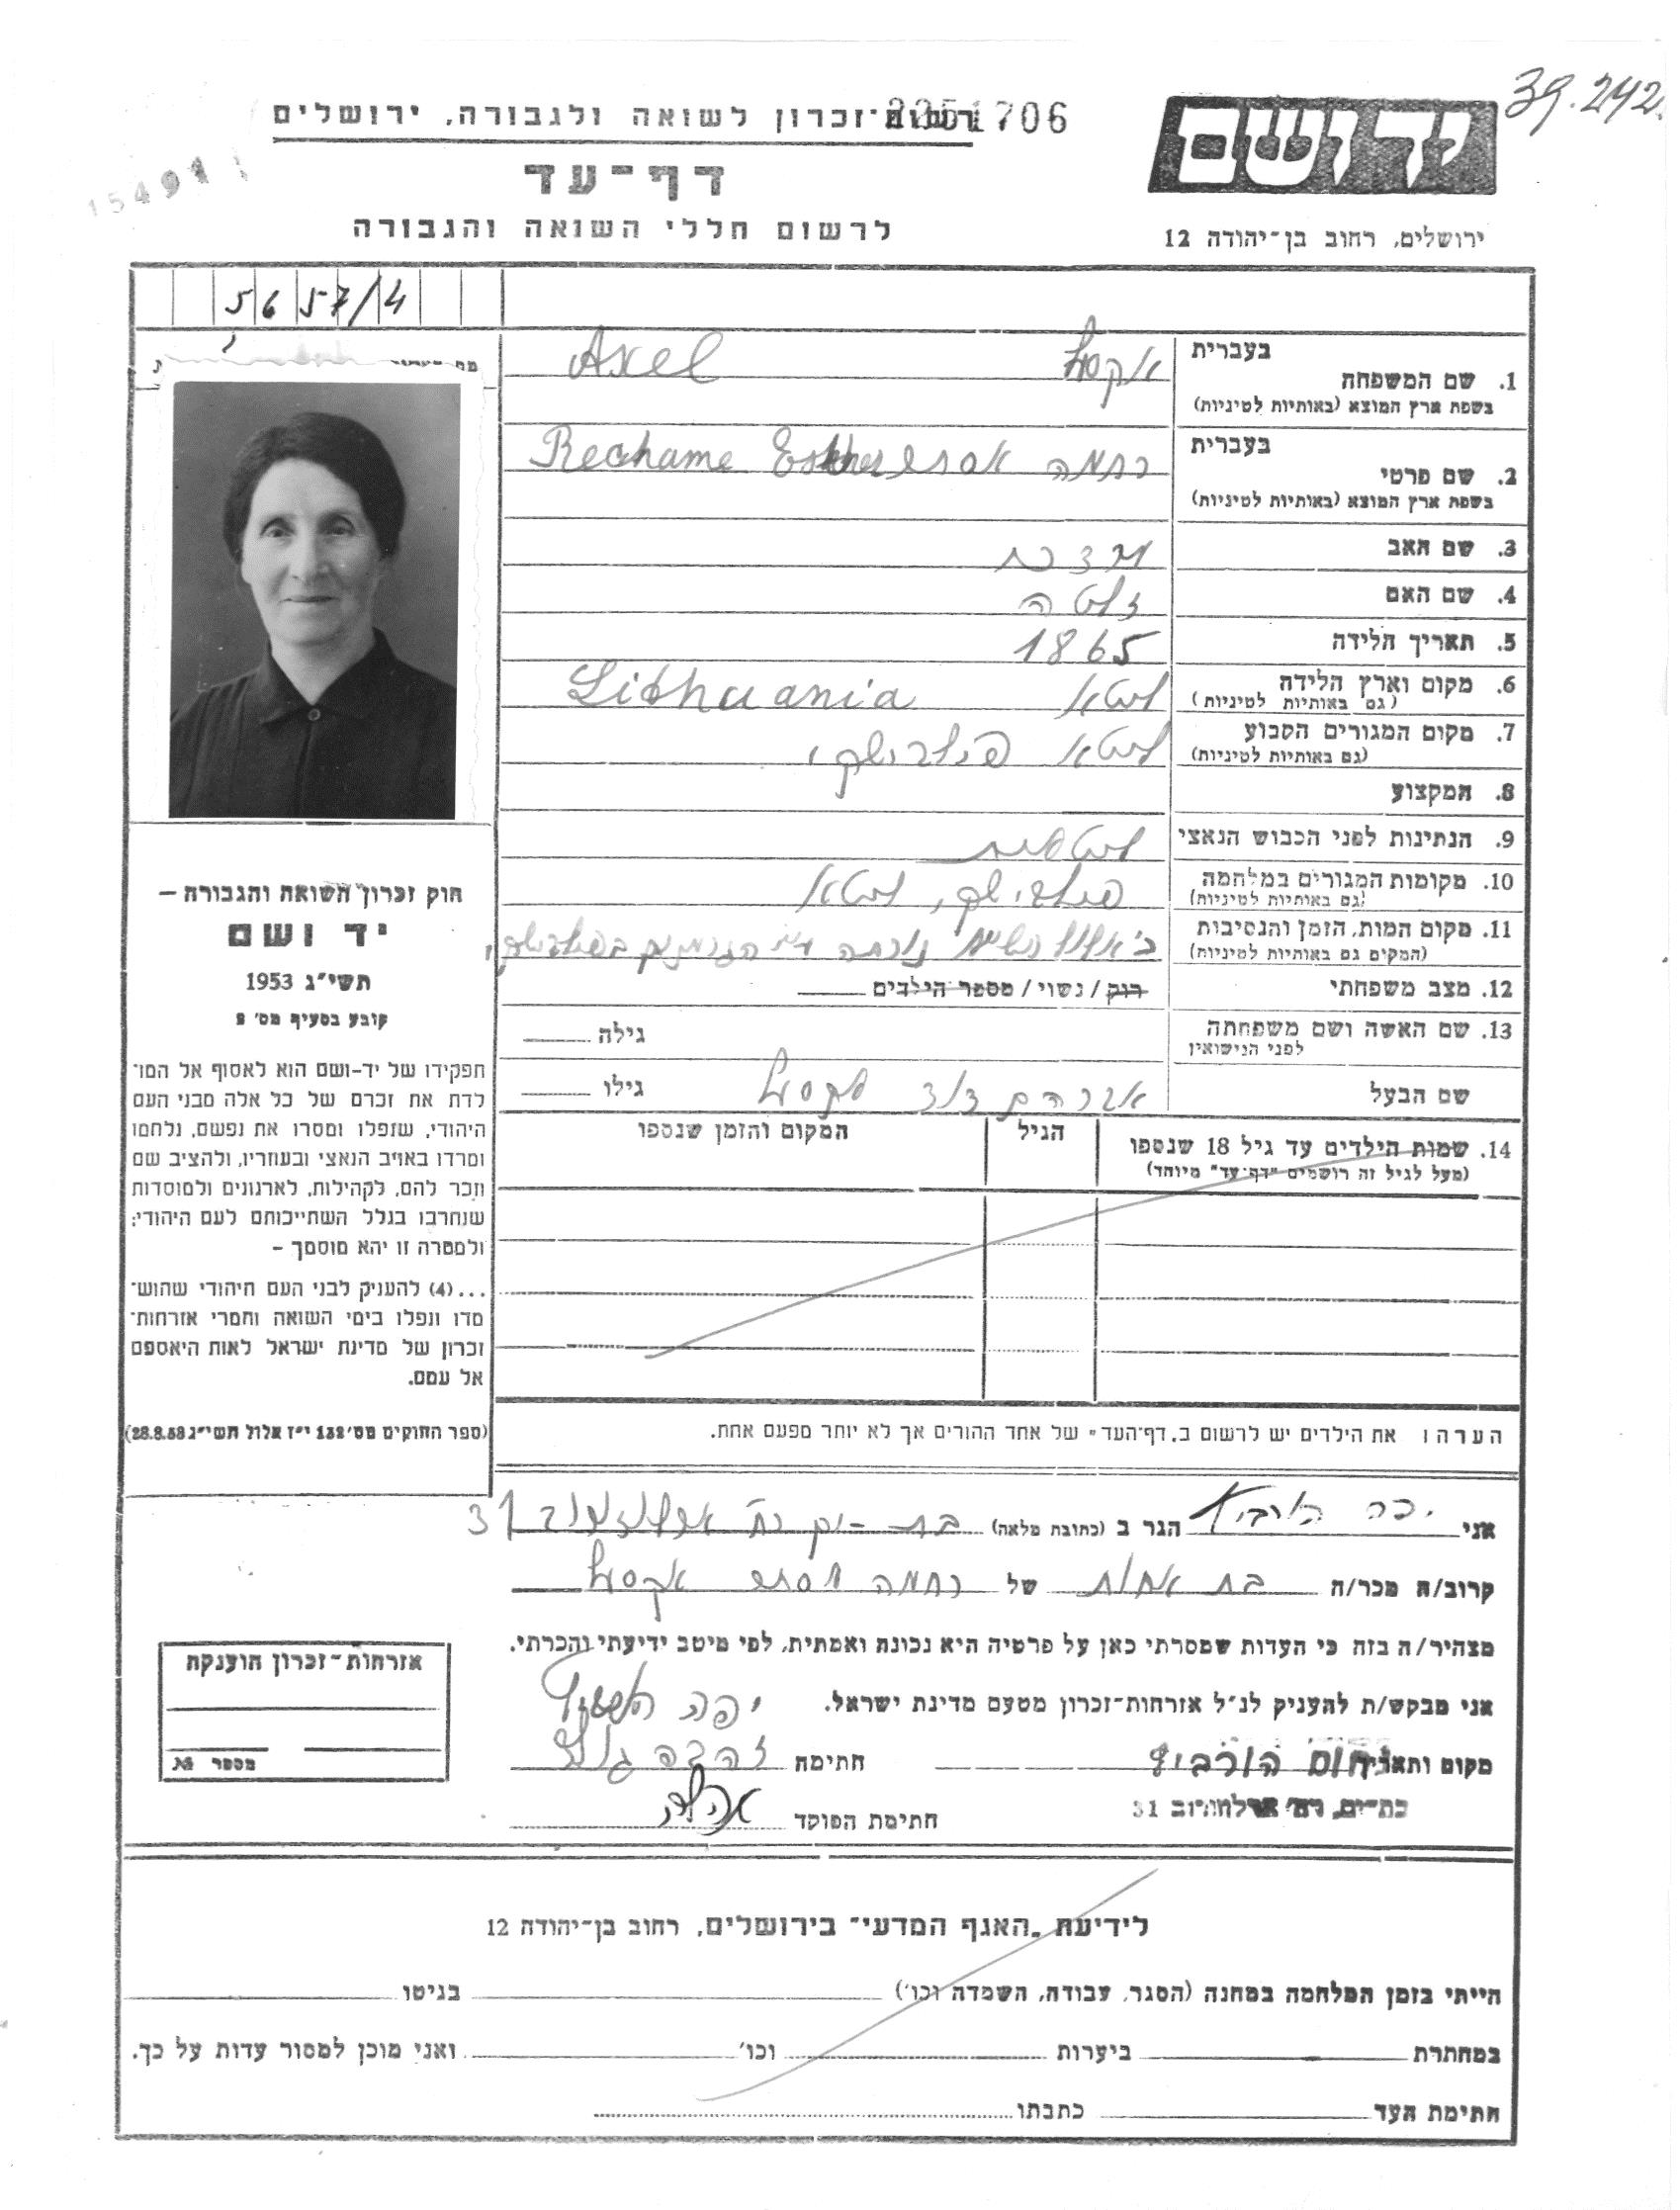 39.242
רשות־זכרון לשואה ולגבורה, ירושלים
1706
יד ושם
דף־עד
לרשום חללי השואה והגבורה
ירושלים, רחוב בן־יהודה 12
5657/4
בעברית
1. שם המשפחה
בשפת ארץ המוצא (באותיות לטיניות)
אקסל Axel
בעברית
2. שם פרטי
בשפת ארץ המוצא (באותיות לטיניות)
רחמה אסתר Rechame Esther
3. שם האב
מרדכי
4. שם האם
זלטה
5. תאריך הלידה
1865
6. מקום וארץ הלידה
(גם באותיות לטיניות)
ליטא Lithuania
7. מקום המגורים הקבוע
(גם באותיות לטיניות)
ליטא פילבישקי
8. המקצוע
9. הנתינות לפני הכבוש הנאצי
ליטאית
10. מקומות המגורים במלחמה
(גם באותיות לטיניות)
פילבישקי, ליטא
11. מקום המות, הזמן והנסיבות
(המקום גם באותיות לטיניות)
נורתה ע״י הגרמנים בפילבישקי
12. מצב משפחתי
רוק / נשוי / מספר הילדים
13. שם האשה ושם משפחתה
לפני הנישואין
גילה
שם הבעל
אברהם דוד אקסל
גילו
14. שמות הילדים עד גיל 18 שנספו
(מעל לגיל זה רושמים "דף־עד" מיוחד)
הגיל
המקום והזמן שנספו
חוק זכרון השואה והגבורה –
יד ושם
תשי״ג 1953
קובע בסעיף מס׳ 2
תפקידו של יד־ושם הוא לאסוף אל המו־
לדת את זכרם של כל אלה מבני העם
היהודי, שנפלו ומסרו את נפשם, נלחמו
ומרדו באויב הנאצי ובעוזריו, ולהציב שם
וזכר להם, לקהילות, לארגונים ולמוסדות
שנחרבו בגלל השתייכותם לעם היהודי;
ולמטרה זו יהא מוסמך –
...(4) להעניק לבני העם היהודי שהוש־
מדו ונפלו בימי השואה והמרי אזרחות־
זכרון של מדינת ישראל לאות היאספם
אל עמם.
(ספר החוקים מס׳ 132 י״ז אלול תשי״ג 28.8.53)
הערה: את הילדים יש לרשום ב„דף־העד״ של אחד ההורים אך לא יותר מפעם אחת.
אני יפה הורביץ הגר ב (כתובת מלאה) בת-ים רח׳ ארלוזורוב 31
קרוב/ה מכר/ה בת אחות של רחמה אסתר אקסל
מצהיר/ה בזה כי העדות שמסרתי כאן על פרטיה היא נכונה ואמתית, לפי מיטב ידיעתי והכרתי.
אני מבקש/ת להעניק לנ״ל אזרחות־זכרון מטעם מדינת ישראל.
יפה הורביץ
מקום ותאריך
נחום הורביץ
בת־ים, רח׳ ארלוזורוב 31
חתימה
חתימת הפוקד
אזרחות־זכרון הוענקה
מספר №
לידיעת „האגף המדעי״ בירושלים, רחוב בן־יהודה 12
הייתי בזמן המלחמה במחנה (הסגר, עבודה, השמדה וכו׳) בגיטו
במחתרת ביערות וכו׳ ואני מוכן למסור עדות על כך.
חתימת העד כתבתו